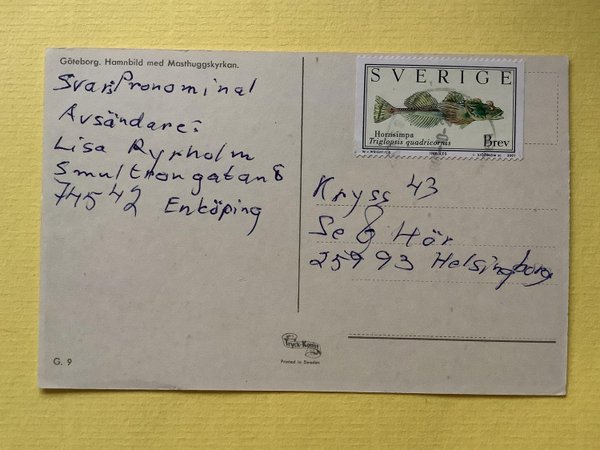 Göteborg. Hamnbild med Masthuggskyrkan.
Svar: Pronominal
Avsändare:
Lisa Ryrholm
Smultrongatan 8
74542 Enköping
SVERIGE
Hornsimpa
Triglopsis quadricornis
Brev
2001
Kryss 43
Se & Hör
25993 Helsingborg
Tryck-Konst
Printed in Sweden
G. 9